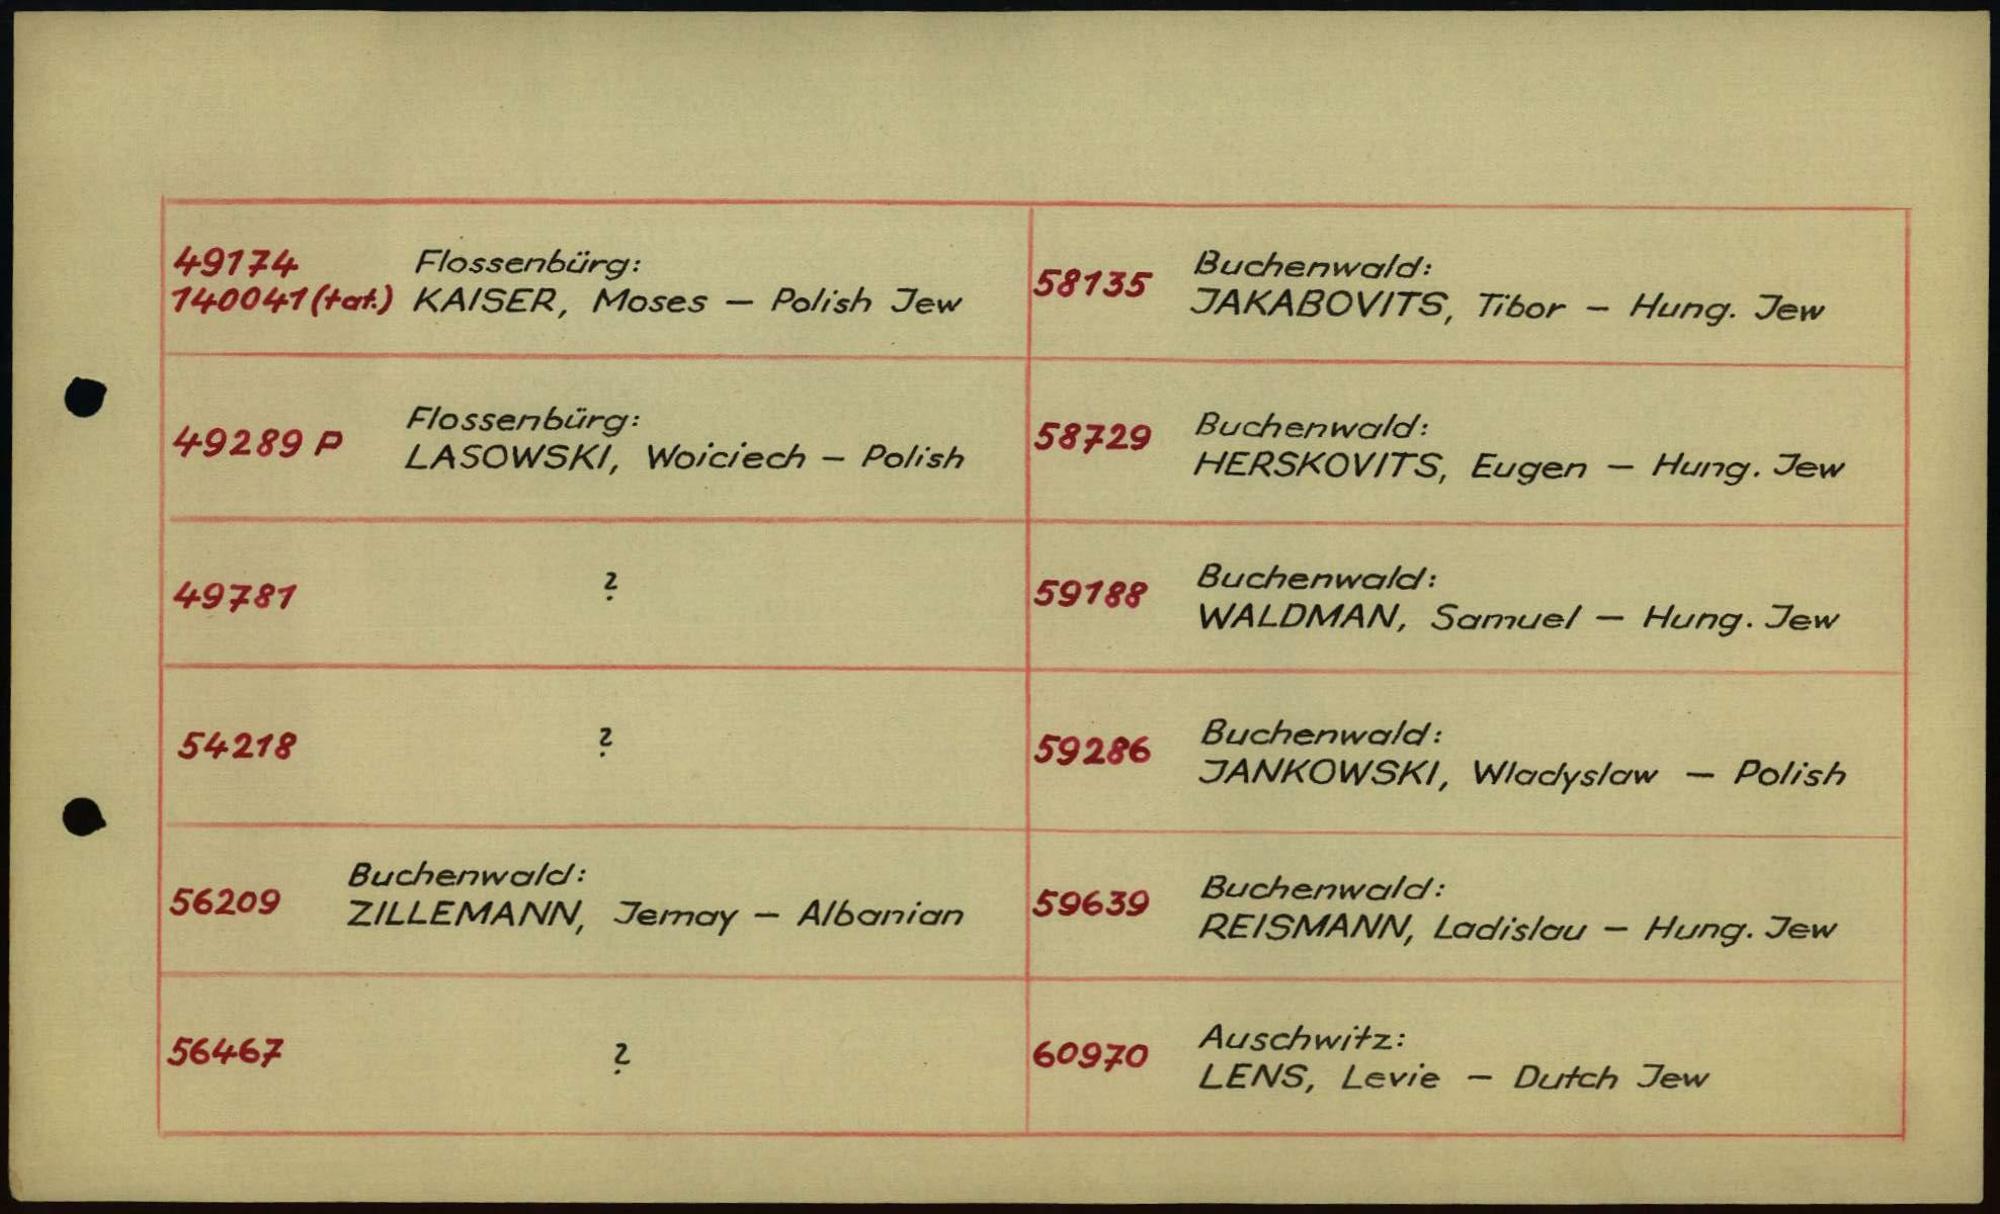 49174
140041 (tat.)
Flossenbürg:
KAISER, Moses – Polish Jew
49289 P
Flossenbürg:
LASOWSKI, Woiciech – Polish
49781
?
54218
?
56209
Buchenwald:
ZILLEMANN, Jemay – Albanian
56467
?
58135
Buchenwald:
JAKABOVITS, Tibor – Hung. Jew
58729
Buchenwald:
HERSKOVITS, Eugen – Hung. Jew
59188
Buchenwald:
WALDMAN, Samuel – Hung. Jew
59286
Buchenwald:
JANKOWSKI, Wladyslaw – Polish
59639
Buchenwald:
REISMANN, Ladislau – Hung. Jew
60970
Auschwitz:
LENS, Levie – Dutch Jew